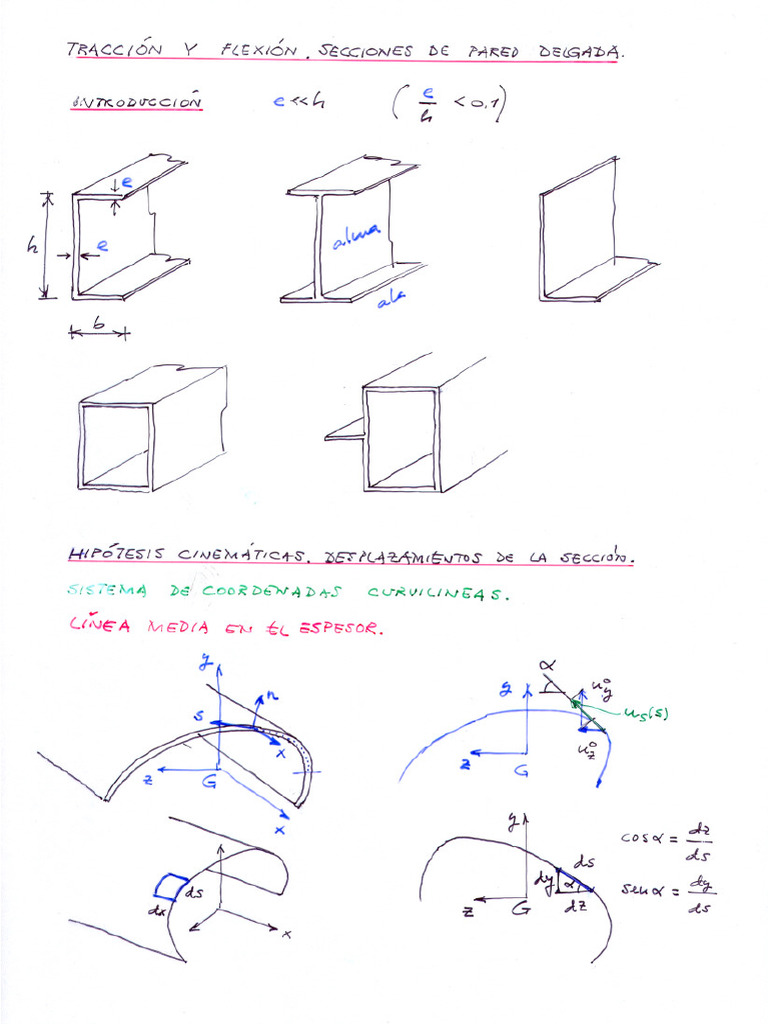 TRACCIÓN Y FLEXIÓN. SECCIONES DE PARED DELGADA.
INTRODUCCIÓN e<<h ( e/h < 0,1)
e
h
e
b
alma
ala
HIPÓTESIS CINEMÁTICAS. DESPLAZAMIENTOS DE LA SECCIÓN.
SISTEMA DE COORDENADAS CURVILINEAS.
LÍNEA MEDIA EN EL ESPESOR.
y
n
s
x
z
G
x
α
y
u_y^o
u_s(s)
u_z^o
z
G
ds
dx
x
y
ds
dy
α
dz
z
G
cos α = dz/ds
sen α = dy/ds